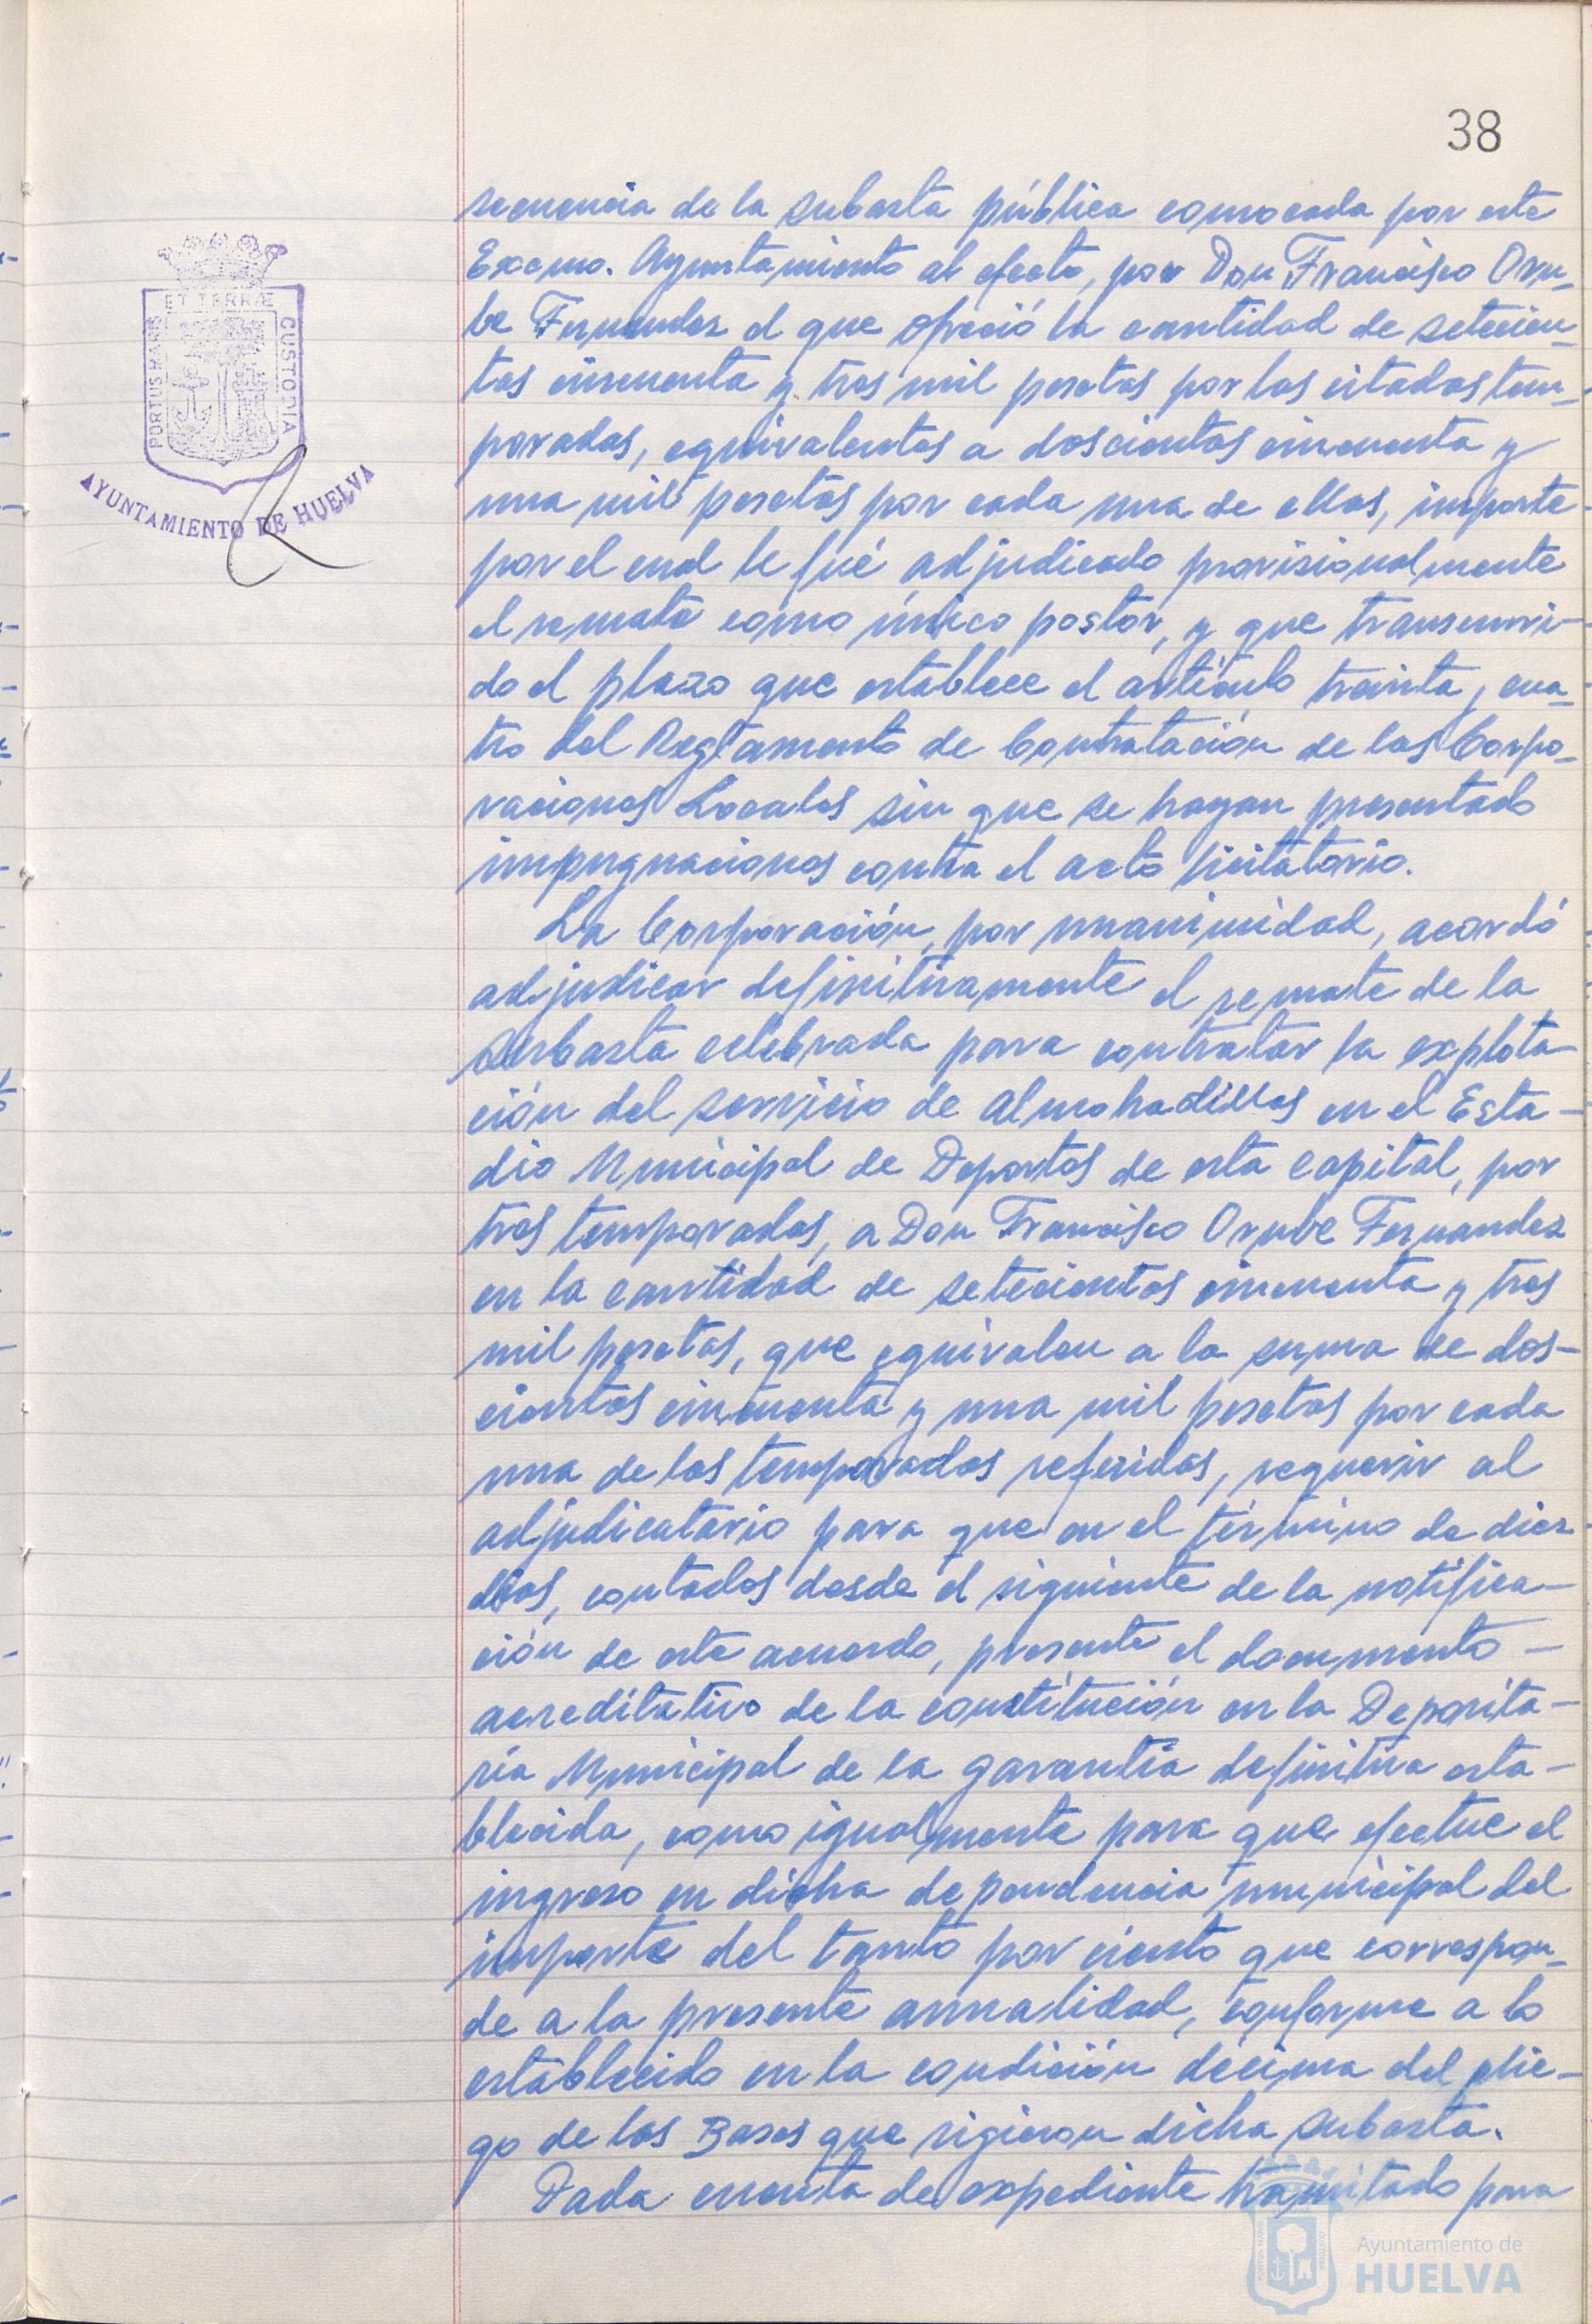 38
secuencia de la subasta pública convocada por este
Excmo. Ayuntamiento al efecto, por Don Francisco Oru-
be Fernandez el que ofreció la cantidad de setecien-
tas cincuenta y tres mil pesetas por las citadas tem-
poradas, equivalentes a doscientas cincuenta y
una mil pesetas por cada una de ellas, importe
por el cual le fué adjudicado provisionalmente
el remate como único postor, y que transcurri-
do el plazo que establece el artículo treinta y cua-
tro del Reglamento de Contratación de las Corpo-
raciones Locales sin que se hayan presentado
impugnaciones contra el acto licitatorio.
La Corporación, por unanimidad, acordó
adjudicar definitivamente el remate de la
subasta celebrada para contratar la explota-
ción del servicio de almohadillas en el Esta-
dio Municipal de Deportes de esta capital, por
tres temporadas, a Don Francisco Orube Fernandez
en la cantidad de setecientas cincuenta y tres
mil pesetas, que equivalen a la suma de dos-
cientas cincuenta y una mil pesetas por cada
una de las temporadas referidas, requerir al
adjudicatario para que en el término de diez
días, contados desde el siguiente de la notifica-
ción de este acuerdo, presente el documento -
acreditativo de la constitución en la Deposita-
ría Municipal de la garantía definitiva esta-
blecida, como igualmente para que efectue el
ingreso en dicha dependencia municipal del
importe del tanto por ciento que correspon-
de a la presente anualidad, conforme a lo
establecido en la condición décima del plie-
go de las Bases que rigieron dicha subasta.
Dada cuenta de expediente tramitado para
PORTUS MARIS ET TERRÆ CUSTODIA
AYUNTAMIENTO DE HUELVA
Ayuntamiento de
HUELVA